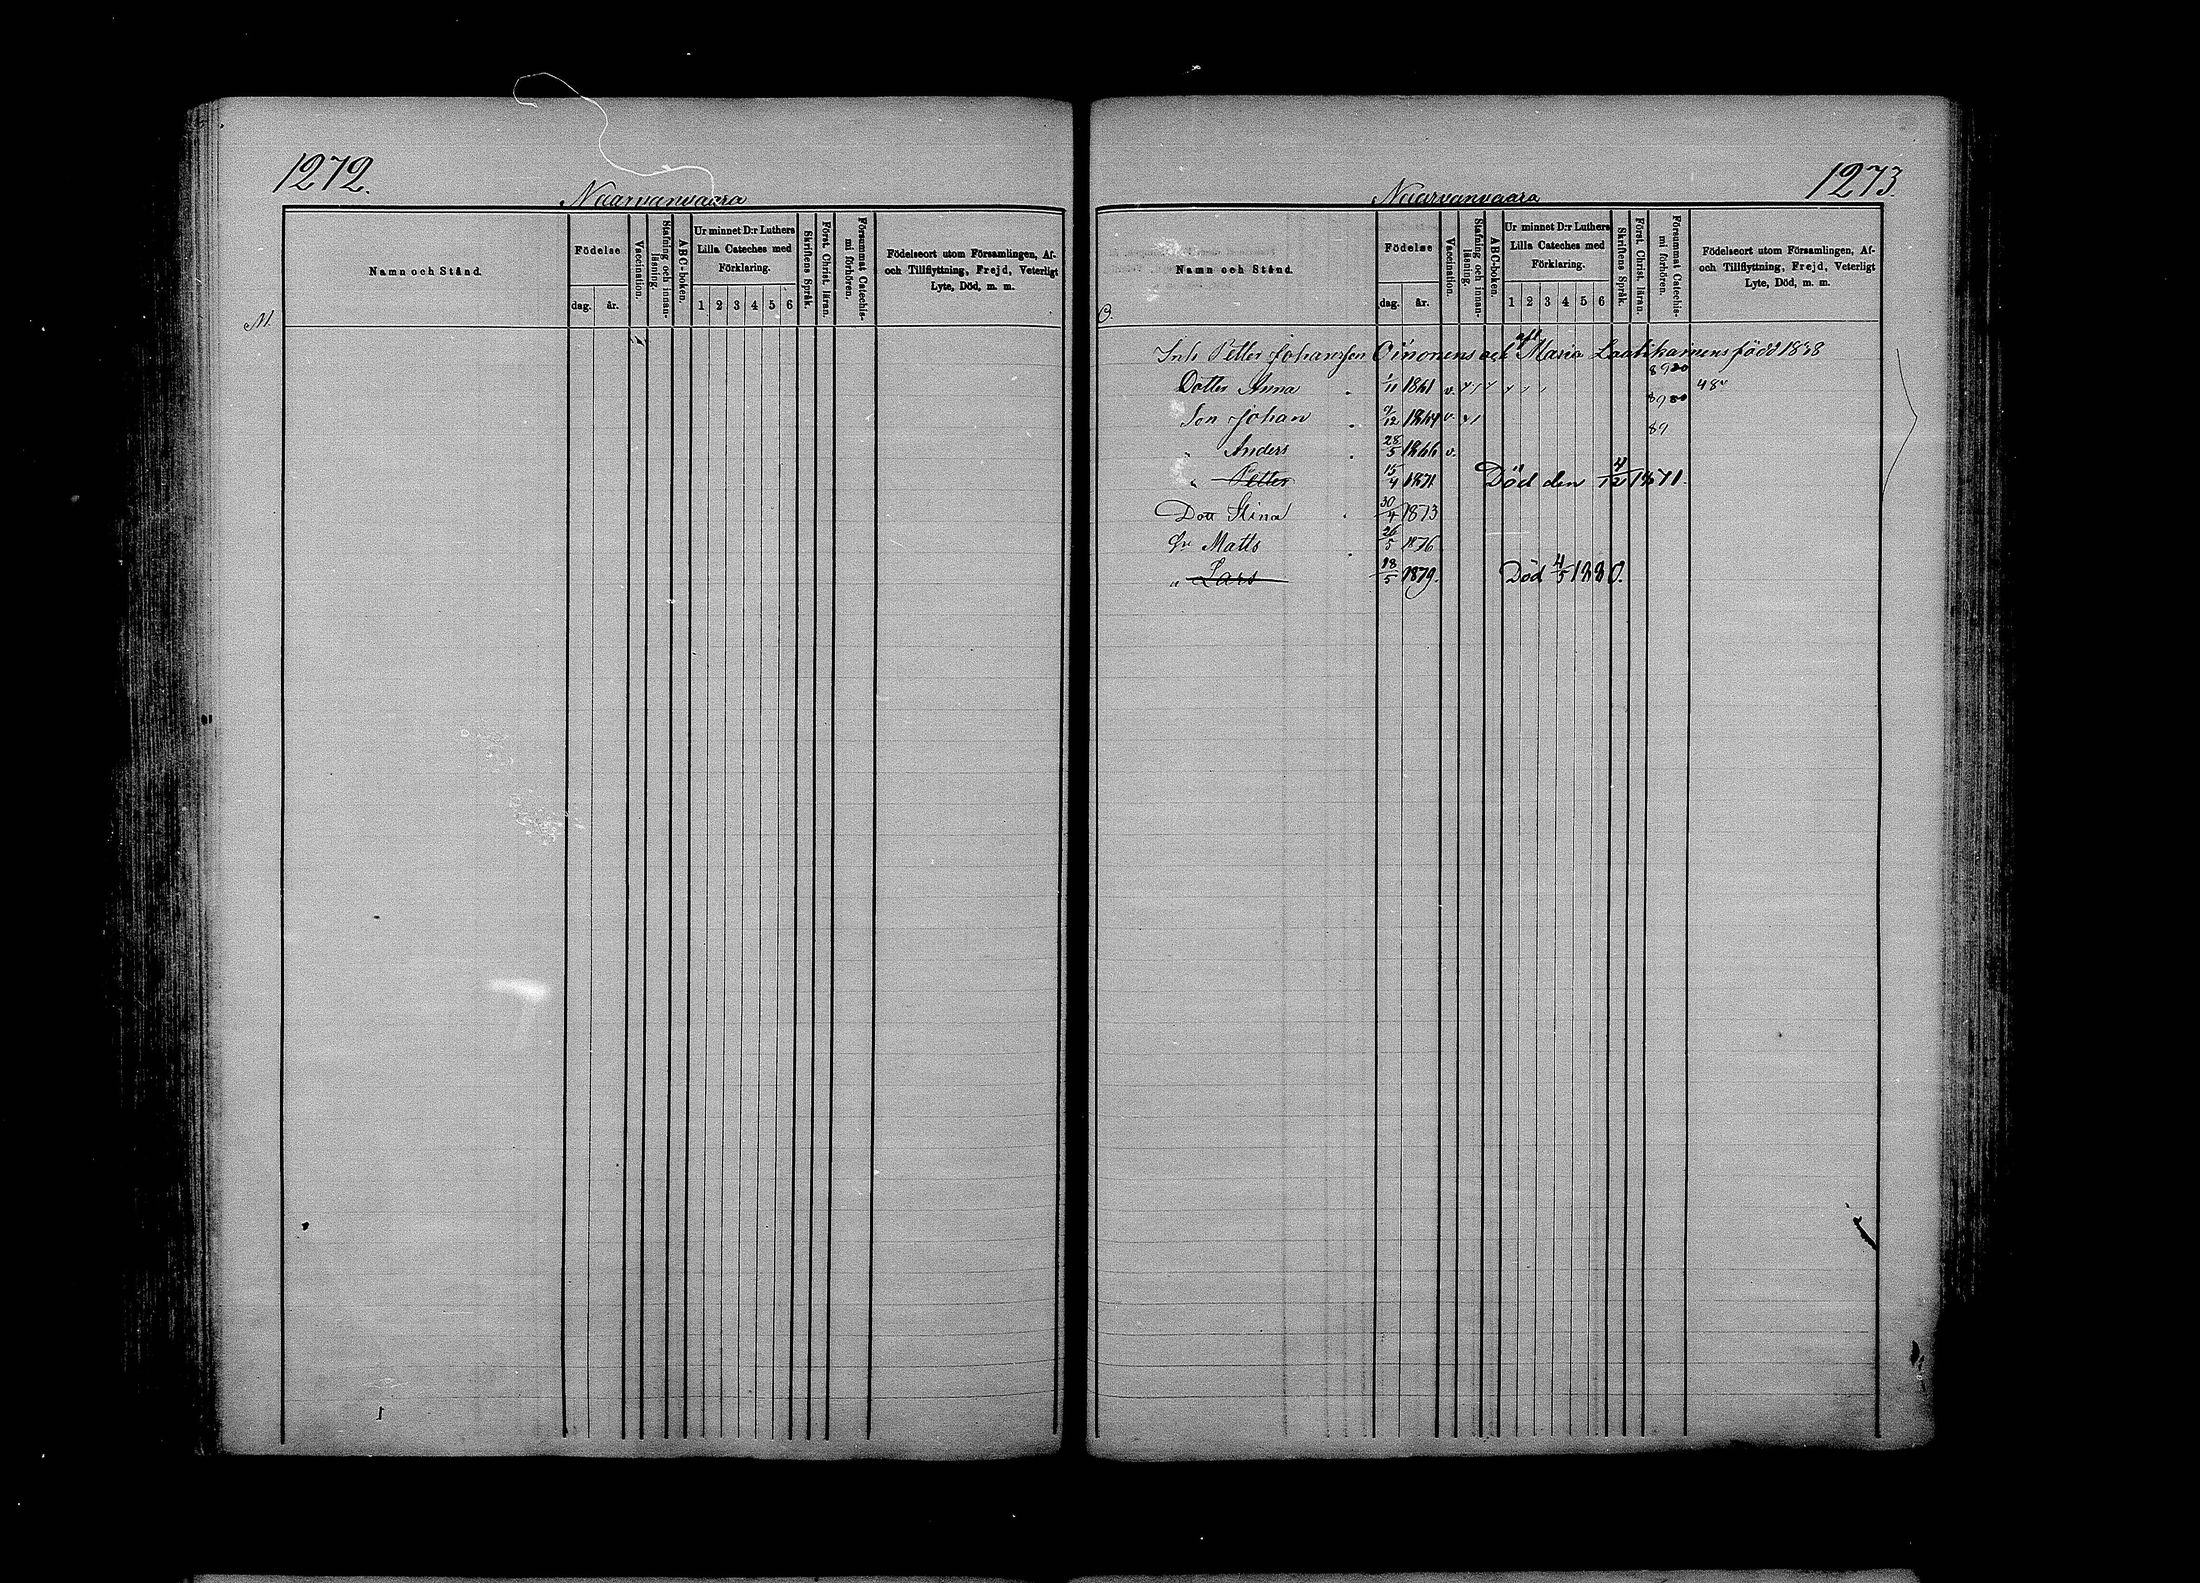 1272.
Naarvanvaara
Namn och Stånd.
Födelse
dag. år.
Vaccination.
Stafning och innan-
läsning.
ABC-boken.
Ur minnet D:r Luthers
Lilla Cateches med
Förklaring.
1 2 3 4 5 6
Skriftens Språk.
Först. Christ. läran.
Försummat Catechis-
mi förhören.
Födelseort utom Församlingen, Af-
och Tillflyttning, Frejd, Veterligt
Lyte, Död, m. m.
M.
1273.
Naarvanvaara
Namn och Stånd.
Födelse
dag. år.
Vaccination.
Stafning och innan-
läsning.
ABC-boken.
Ur minnet D:r Luthers
Lilla Cateches med
Förklaring.
1 2 3 4 5 6
Skriftens Språk.
Först. Christ. läran.
Försummat Catechis-
mi förhören.
Födelseort utom Församlingen, Af-
och Tillflyttning, Frejd, Veterligt
Lyte, Död, m. m.
O.
Inh Petter Johansson Oinonens och Maria Laatikainens född 1838
8980
Dotter Anna 1/11 1861 v. 48
8980
Son Johan 9/12 1864 v.
89
" Anders 28/5 1866 v.
" Petter 15/4 1871 Död den 4/12 1871.
Dott Stina 30/4 1873
Sn Matts 26/5 1876
" Lars 18/5 1879. Död 4/5 1880.